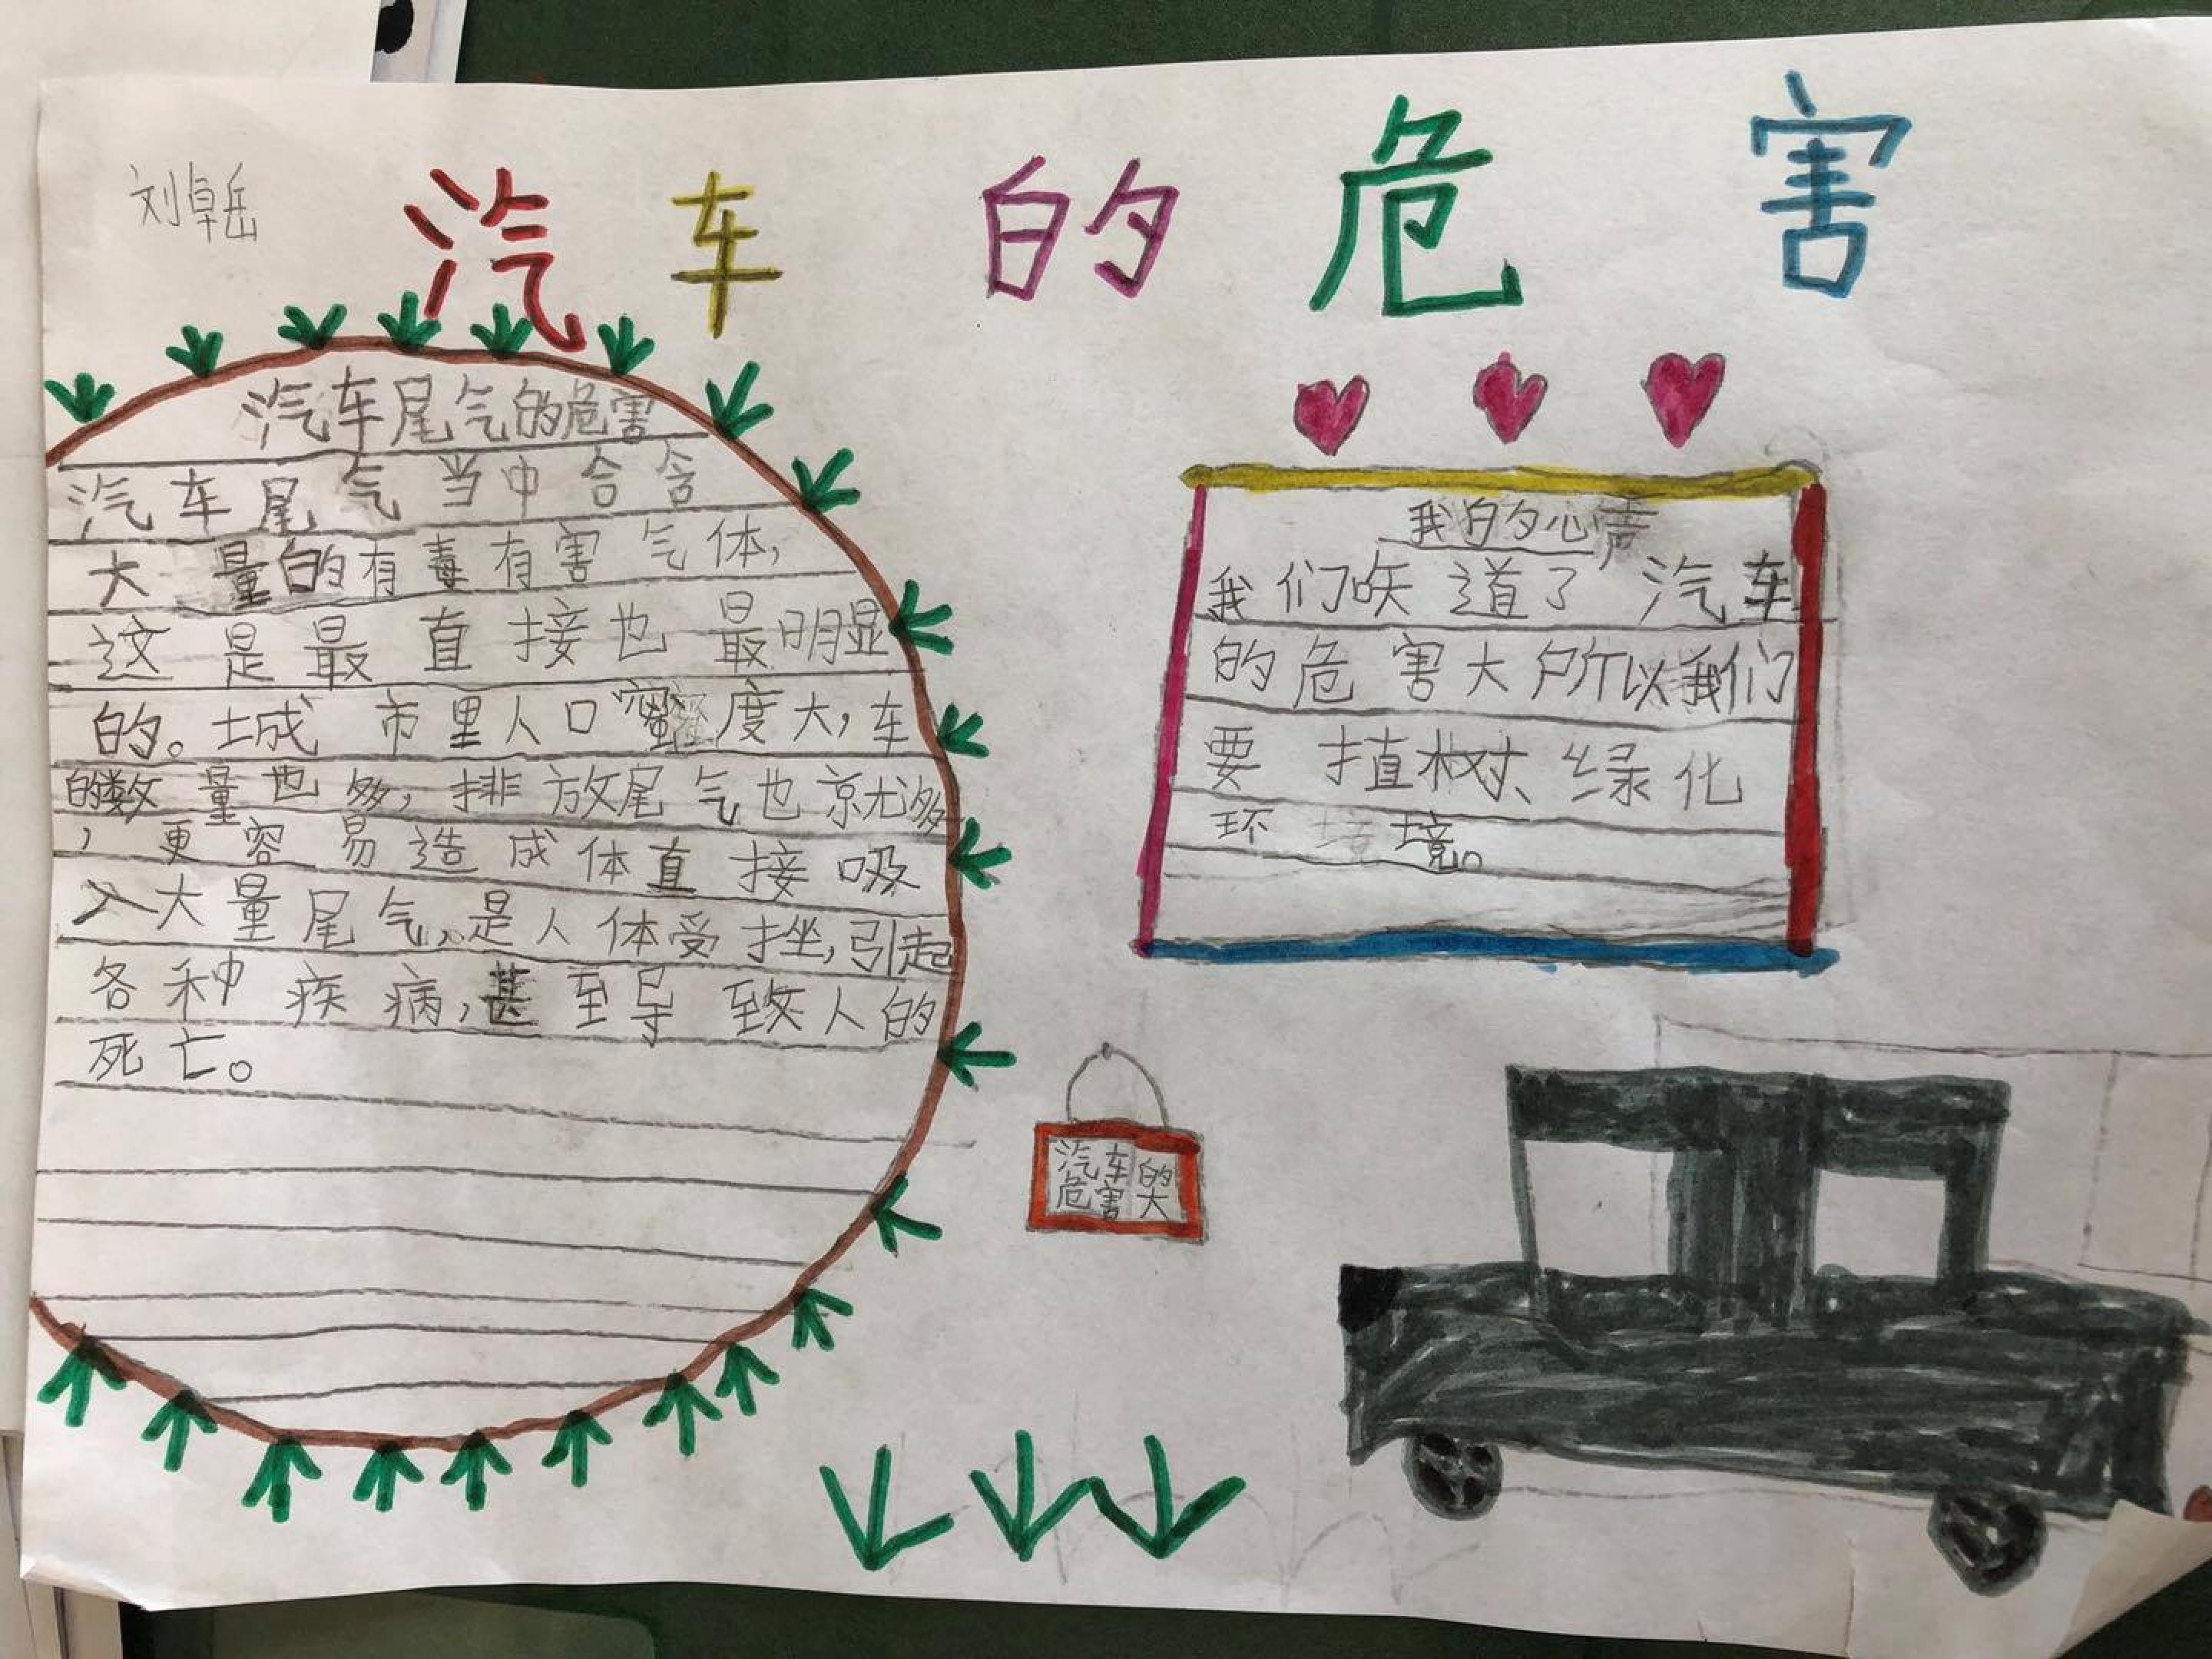 刘卓岳
汽车的危害
汽车尾气的危害
汽车尾气当中合含
大量的有毒有害气体,
这是最直接也最明显
的。城市里人口度大,车
的数量也多,排放尾气也就多
,更容易造成体直接吸
入大量尾气。是人体受挫,引起
各种疾病,甚至导致人的
死亡。
我的心声
我们道了汽车
的危害大所以我们
要植树、绿化
环境。
汽车的
危害大